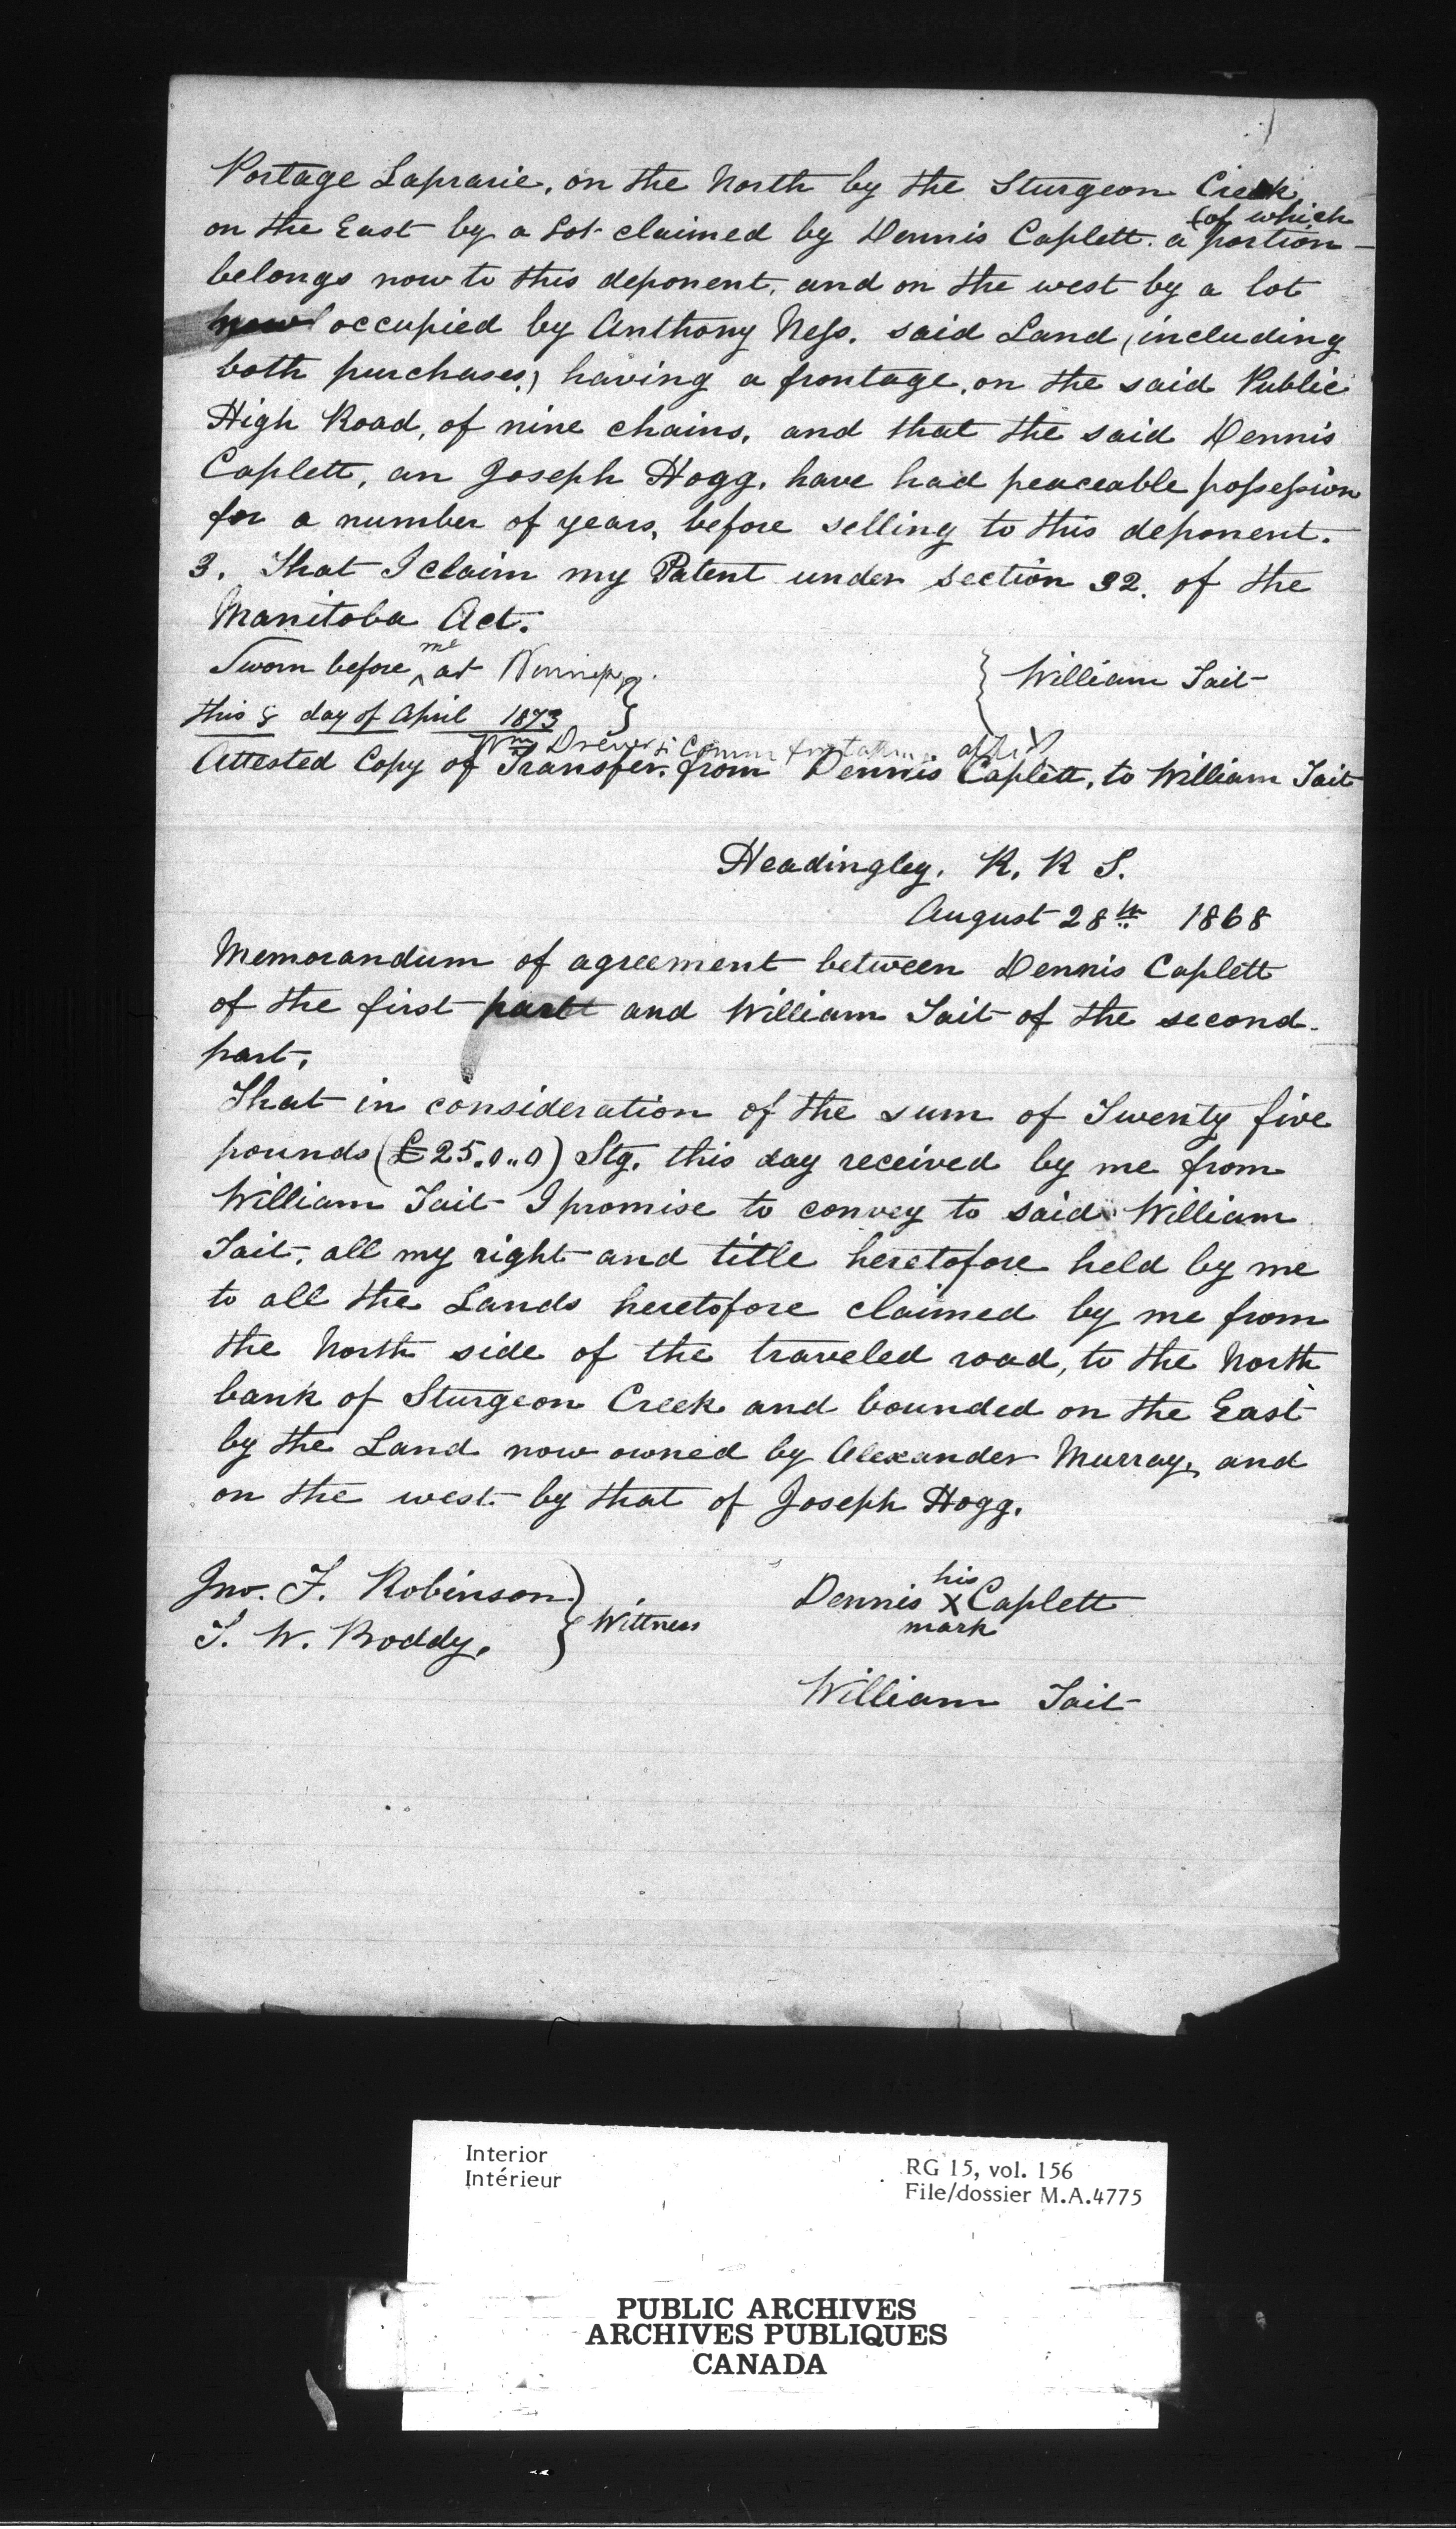 Portage Laprarie, on the North by the Sturgeon Creek
on the East by a Lot claimed by Dennis Caplett. a (of which portion
belongs now to this deponent, and on the west by a lot
now occupied by Anthony Ness. said Land, (including
both purchases,) having a frontage, on the said Public
High Road, of nine chains, and that the said Dennis
Caplett, an Joseph Hogg. have had peaceable possession
for a number of years, before selling to this deponent.
3. That I claim my Patent under section 32. of the
Manitoba Act.
Sworn before me at Winnipeg } { William Tait
this 8 day of April 1873
Wm Drever
Attested Copy of Transfer. from Dennis Caplett, to William Tait
Headingley. R. R S.
August 28th 1868
Memorandum of agreement between Dennis Caplett
of the first part and William Tait of the second
part,
That in consideration of the sum of Twenty five
pounds (£25.0..0) Stg. this day received by me from
William Tait I promise to convey to said William
Tait. all my right and title heretofore held by me
to all the Lands heretofore claimed by me from
the North side of the traveled road, to the North
bank of Sturgeon Creek and bounded on the East
by the Land now owned by Alexander Murray, and
on the west by that of Joseph Hogg.
Jno. F. Robinson } Wittness
T. W. Boddy.
his
Dennis X Caplett
mark
William Tait
Interior
Intérieur
RG 15, vol. 156
File/dossier M.A.4775
PUBLIC ARCHIVES
ARCHIVES PUBLIQUES
CANADA